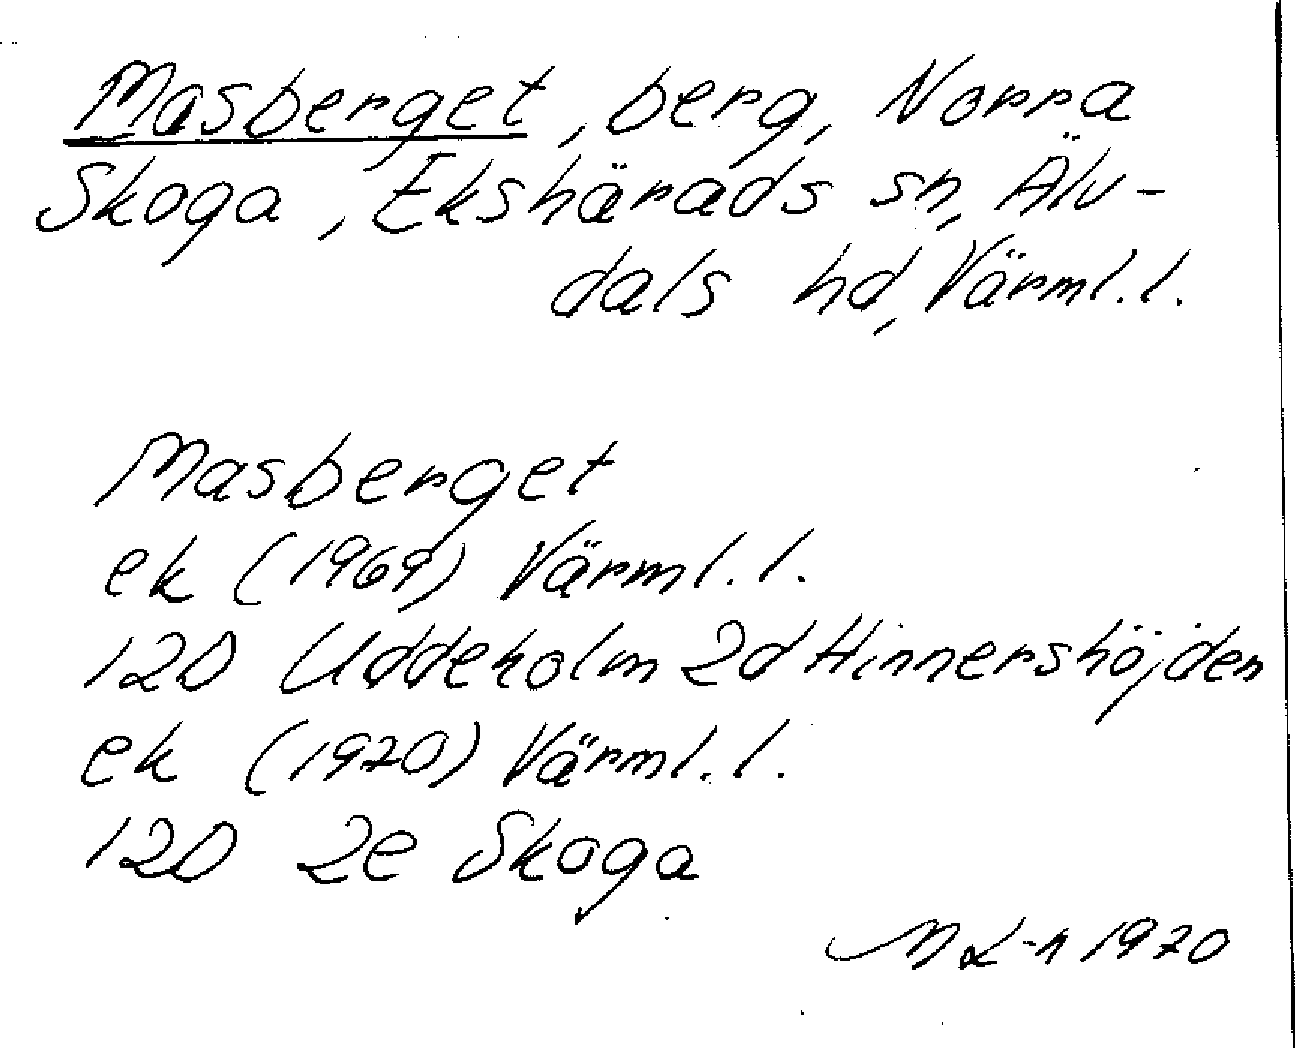 Masberget, berg, Norra
Skoga, Ekshärads sn, Älv-
dals hd, Värml.l.
Masberget
ek (1969) Värml.l.
12D Uddeholm 2d Hinnershöjden
ek (1970) Värml.l.
12D 2e Skoga
ML-n 1970